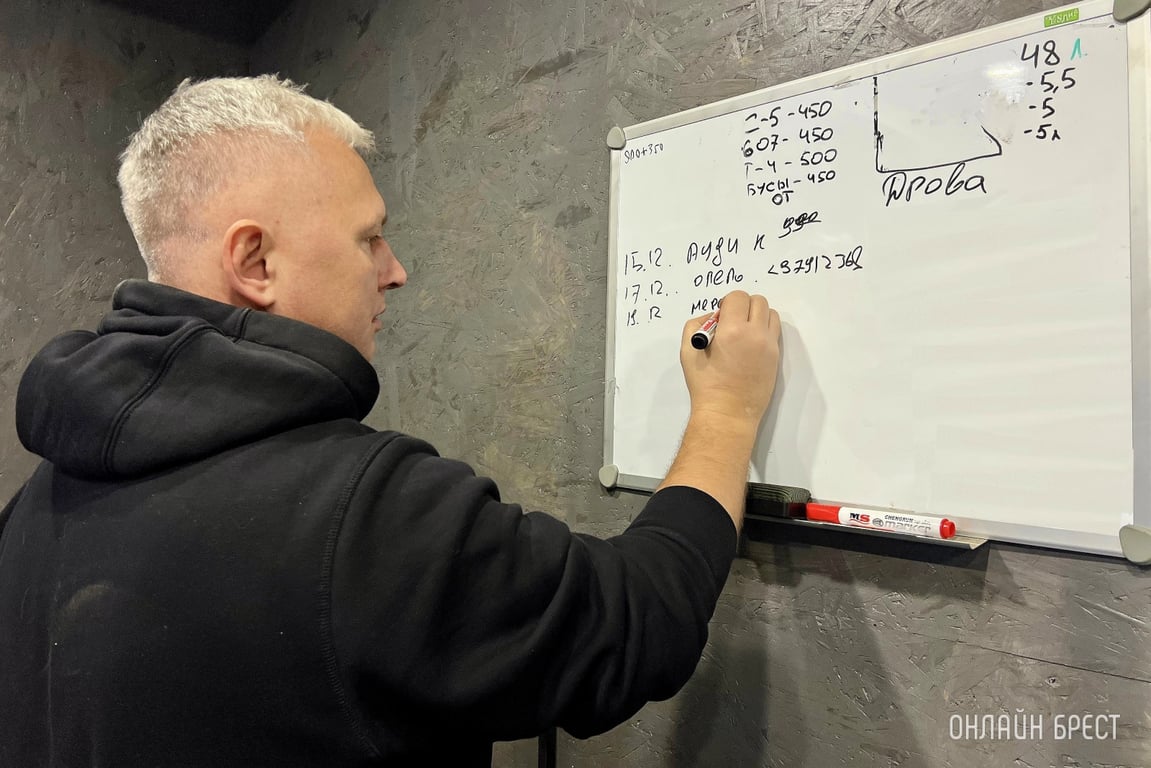 900+350
-5 -450
607- 450
Т-4 - 500
БУСЫ - 450
ОТ
Дрова
48 л.
- 5,5
- 5
-5л
15.12. Ауди
17.12.. опель.
12 мерс
MS CHENGRUN marker
ОНЛАЙН БРЕСТ